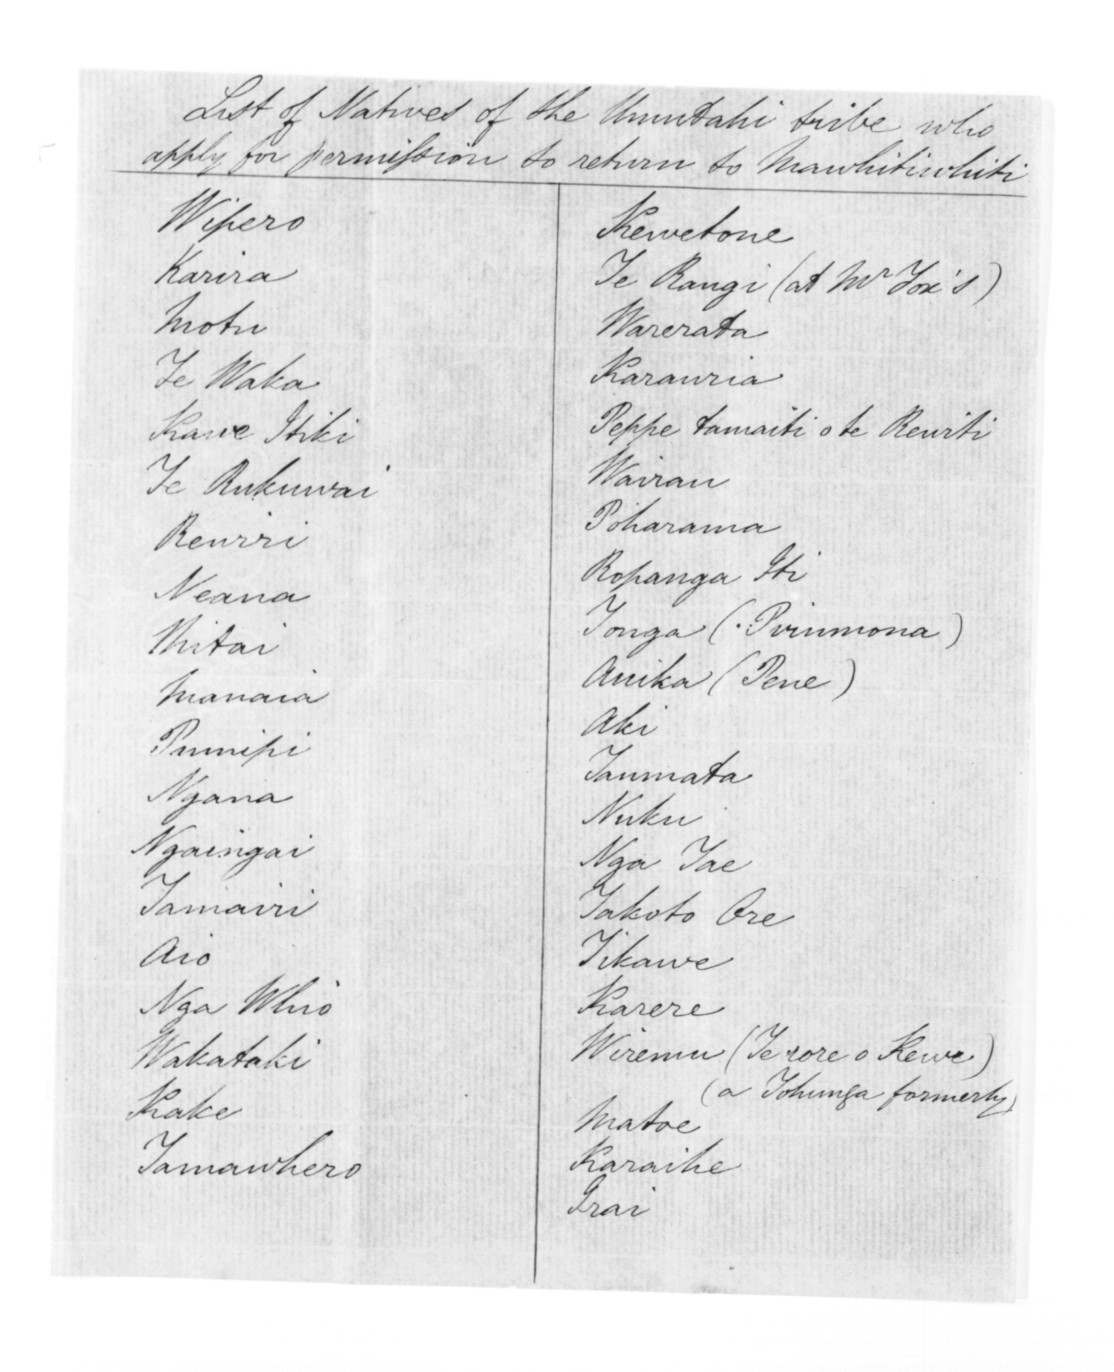 List of Natives of the Umutahi tribe who
apply for permission to return to Mawhitiwhiti
Wipero
Karira
Motu
Te Waka
Kawe Itiki
Te Rukuwai
Rewiri
Neana
Mitai
Manaia
Pumipi
Ngana
Ngaingai
Tamairi
Aio
Nga Whio
Wakataki
Kake
Tamawhero
Kewetone
Te Rangi (at Mr Fox's)
Warerata
Karauria
Peppe tamaiti o te Rewiti
Wairau
Poharama
Ropanga Iti
Tonga (Pirimona)
Anika (Pene)
Aki
Taumata
Nuku
Nga Tae
Takoto Ore
Tikawe
Karere
Wiremu (Te rore o Rewe)
(a Tohunga formerly)
Matoe
Karaihe
Irai